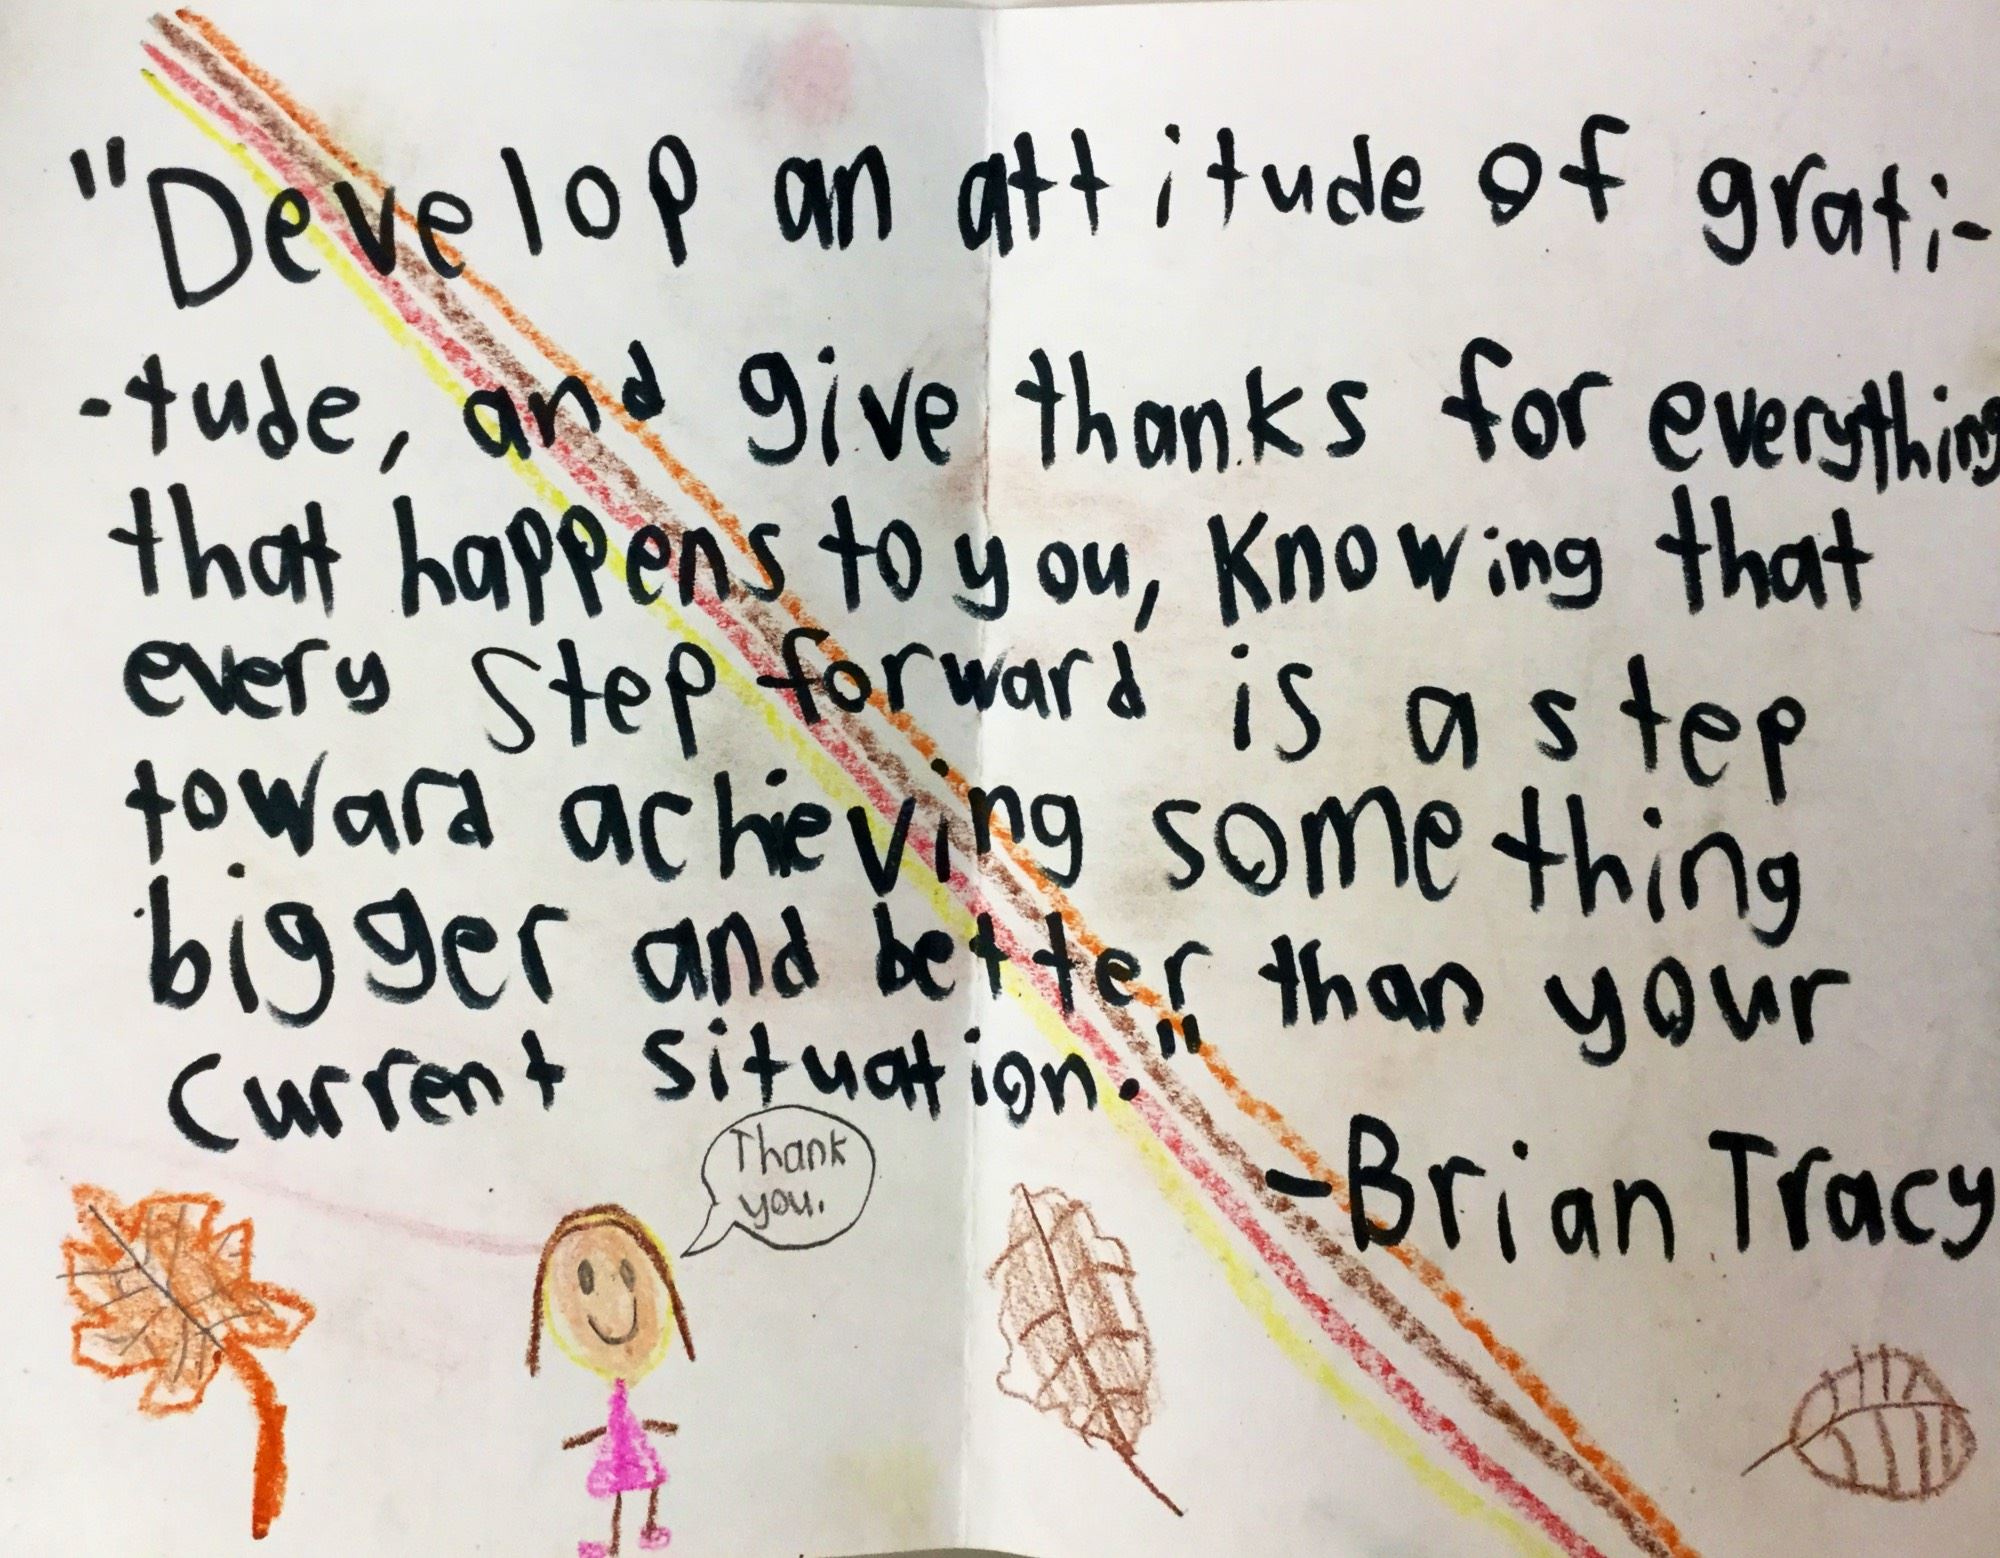 "Develop an attitude of grati-
-tude, and give thanks for everything
that happens to you, Knowing that
every step forward is a step
toward achieving something
bigger and better than your
current situation."
-Brian Tracy
Thank
you.